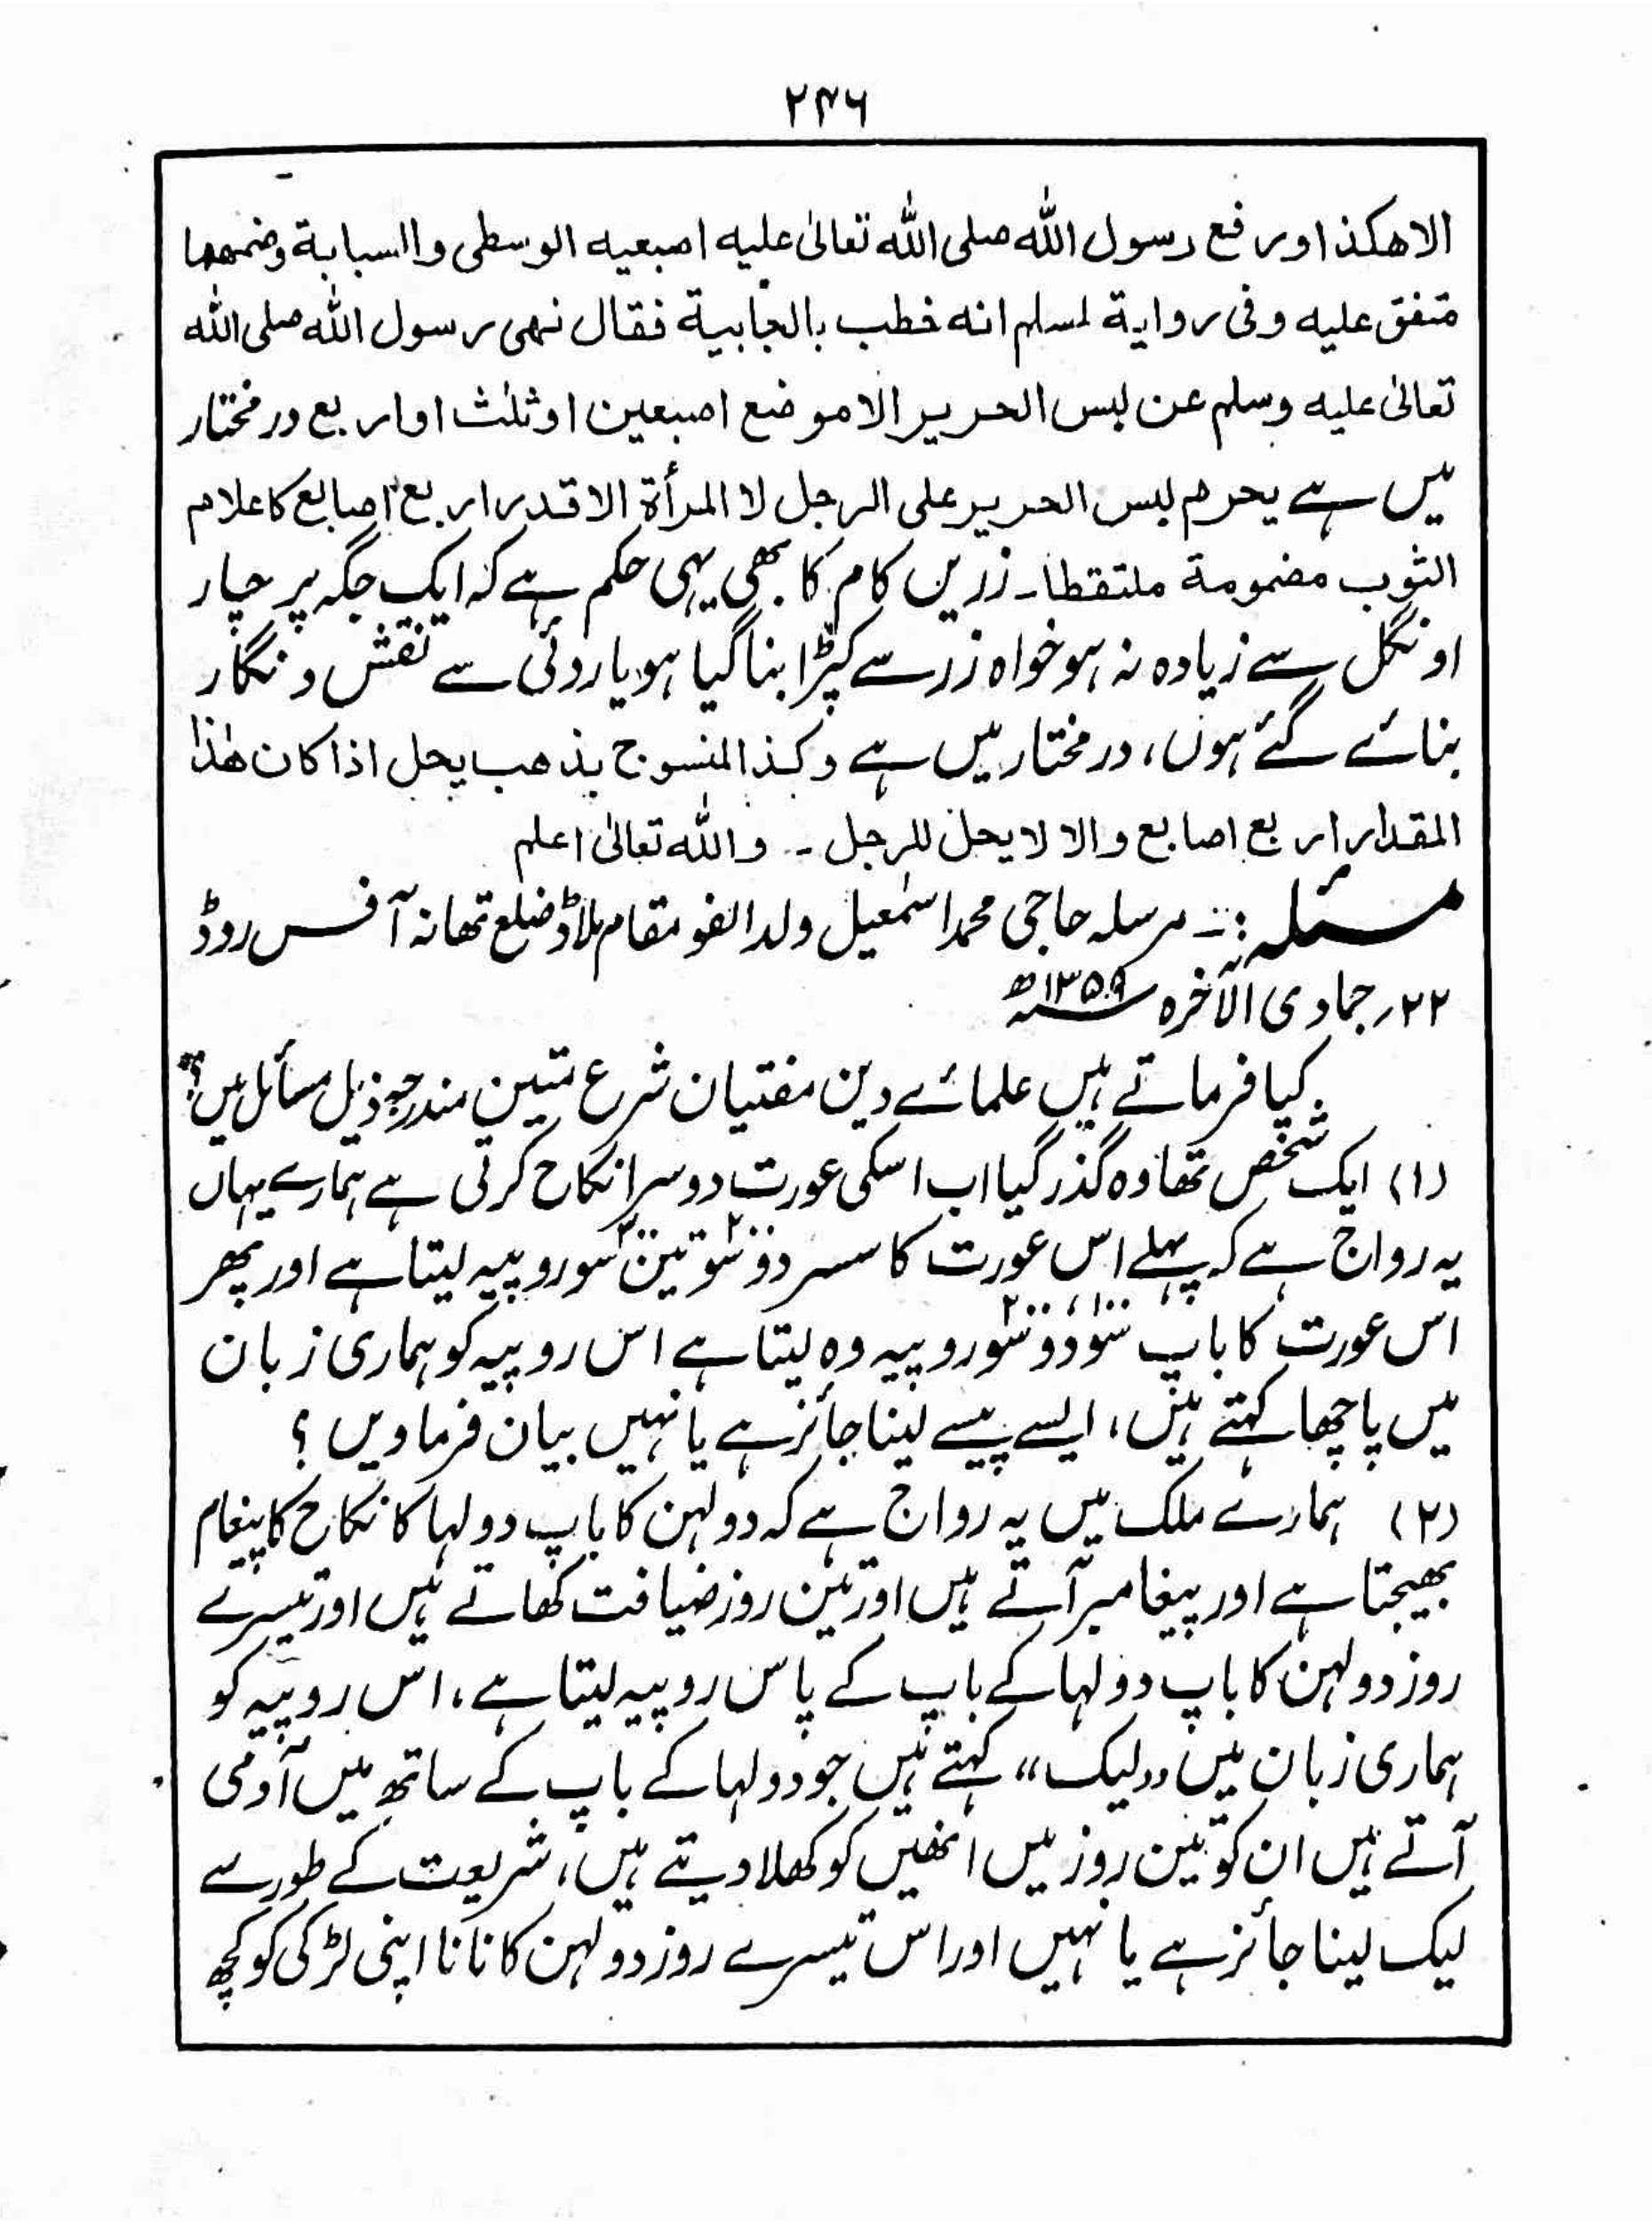 ۲۴۶
الاھکذا ورفع رسول اللہ صلی اللہ تعالیٰ علیہ اصبعیہ الوسطی والسبابۃ وضمھما
متفق علیہ وفی روایۃ لمسلم انہ خطب بالجابیۃ فقال نھی رسول اللہ صلی اللہ
تعالیٰ علیہ وسلم عن لبس الحریر الا موضع اصبعین او ثلث او اربع درمختار
میں ہے یحرم لبس الحریر علی الرجل لا المرأۃ الا قدر اربع اصابع کاعلام
الثوب مضمومۃ ملتقطا۔ زریں کام کا بھی یہی حکم ہے کہ ایک جگہ پر چار
اونگل سے زیادہ نہ ہو خواہ زر سے کپڑا بنا گیا ہو یا روئی سے نقش و نگار
بنائے گئے ہوں، درمختار میں ہے وکذا المنسوج بذھب یحل اذا کان ھٰذا
المقدار اربع اصابع والا لا یحل للرجل ۔ واللہ تعالیٰ اعلم
مسئلہ :۔ مرسلہ حاجی محمد اسمٰعیل ولد الفو مقام ملاڈ ضلع تھانہ آفس روڈ
۲۲؍ جمادی الآخرہ ۱۳۵۹ھ
کیا فرماتے ہیں علمائے دین مفتیان شرع متین مندرجہ ذیل مسائل میں؟
(۱) ایک شخص تھا وہ گذر گیا اب اسکی عورت دوسرا نکاح کرتی ہے ہمارے یہاں
یہ رواج ہے کہ پہلے اس عورت کا سسر دو سو ۲۰۰ تین سو ۳۰۰ روپیہ لیتا ہے اور پھر
اس عورت کا باپ سو ۱۰۰، دو سو ۲۰۰ روپیہ وہ لیتا ہے اس روپیہ کو ہماری زبان
میں پاچھا کہتے ہیں، ایسے پیسے لینا جائز ہے یا نہیں بیان فرماویں ؟
(۲) ہمارے ملک میں یہ رواج ہے کہ دولہن کا باپ دولہا کا نکاح کا پیغام
بھیجتا ہے اور پیغامبر آتے ہیں اور تین روز ضیافت کھاتے ہیں اور تیسرے
روز دولہن کا باپ دولہا کے باپ کے پاس روپیہ لیتا ہے، اس روپیہ کو
ہماری زبان میں ،،لیک،، کہتے ہیں جو دولہا کے باپ کے ساتھ میں آدمی
آتے ہیں ان کو تین روز میں انھیں کو کھلا دیتے ہیں، شریعت کے طور سے
لیک لینا جائز ہے یا نہیں اور اس تیسرے روز دولہن کا نانا اپنی لڑکی کو کچھ